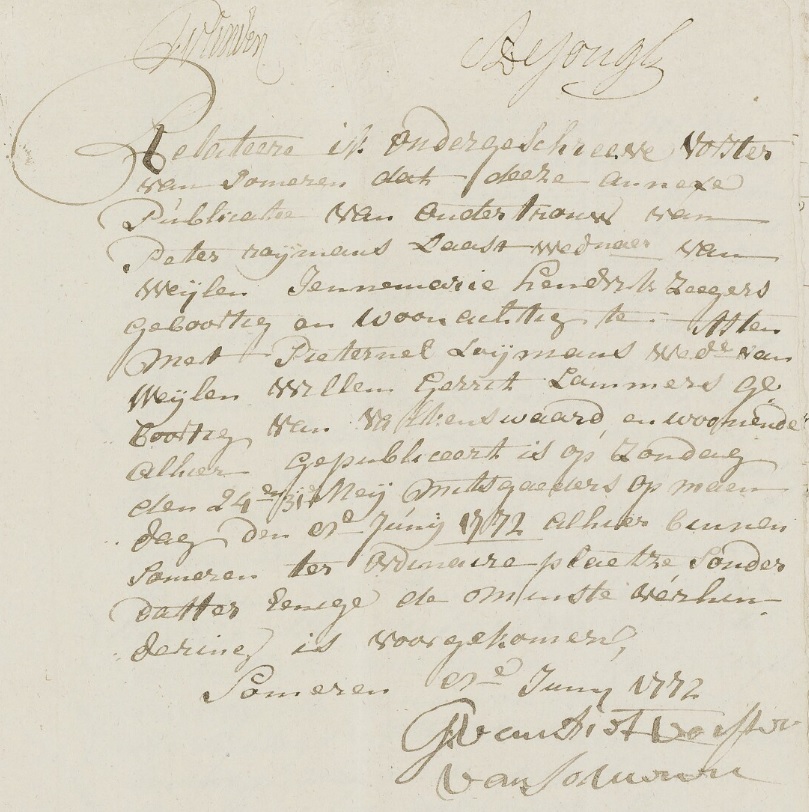 De Jongh
Relateere ik ondergeschreeve vorster
van Someren dat deeze annexe
Publicatie van ondertrouw van
Peter roijmans Laast wednaer van
Weijlen Jennemarie hendrik Zeegers
geboortig en woonachtig te Asten
met Pieternel Luijmans wed.e van
Weijlen willem Gerrit Lammers ge
boortig van Valkenswaard, en woonende
alhier gepubliceert is op Zondag
den 24e 31e Meij mitsgaeders op maen
dag den Junij 1772 alhier binnen
Someren ter ordinaire plaetze Sonder
datter Eenige de minste verhin-
dering is voorgekomen,
Someren Junij 1772
vorster
van Someren